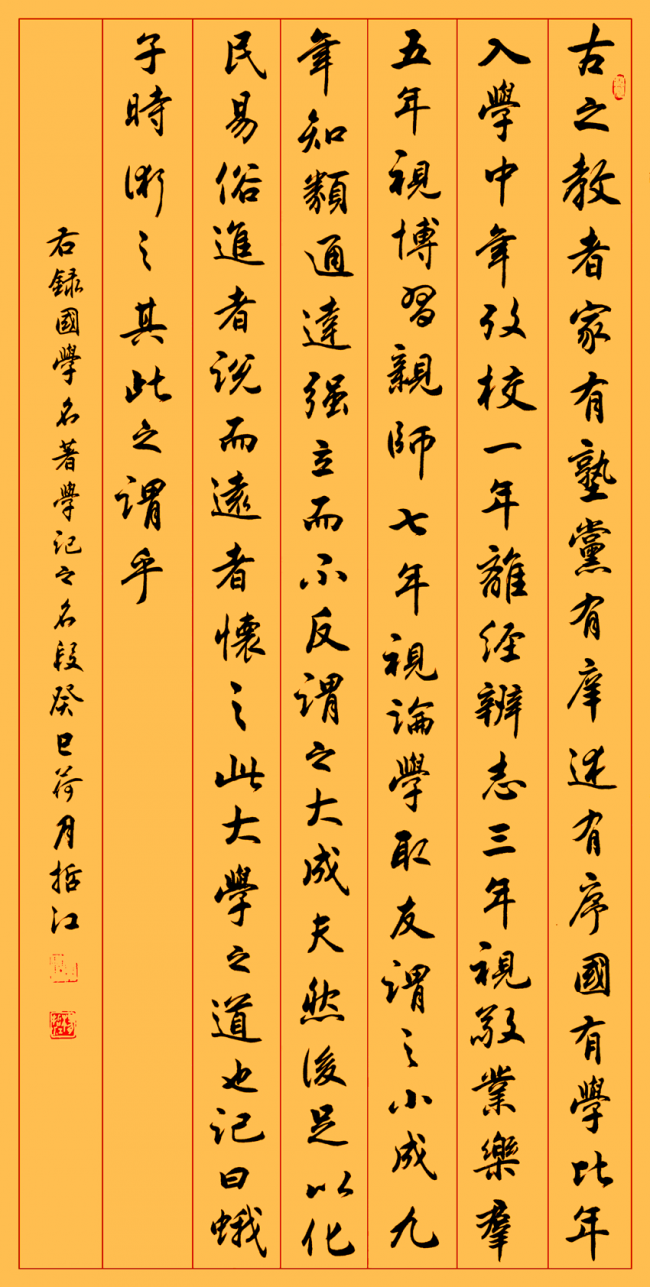 古之教者家有塾黨有庠述有序國有學比年
入學中年攷校一年離經辨志三年視敬業樂羣
五年視博習親師七年視論學取友謂之小成九
年知類通達强立而不反謂之大成夫然後足以化
民易俗進者説而遠者懷之此大學之道也記曰蛾
子時術之其此之謂乎
右録國學名著學記之名段癸巳荷月哲江